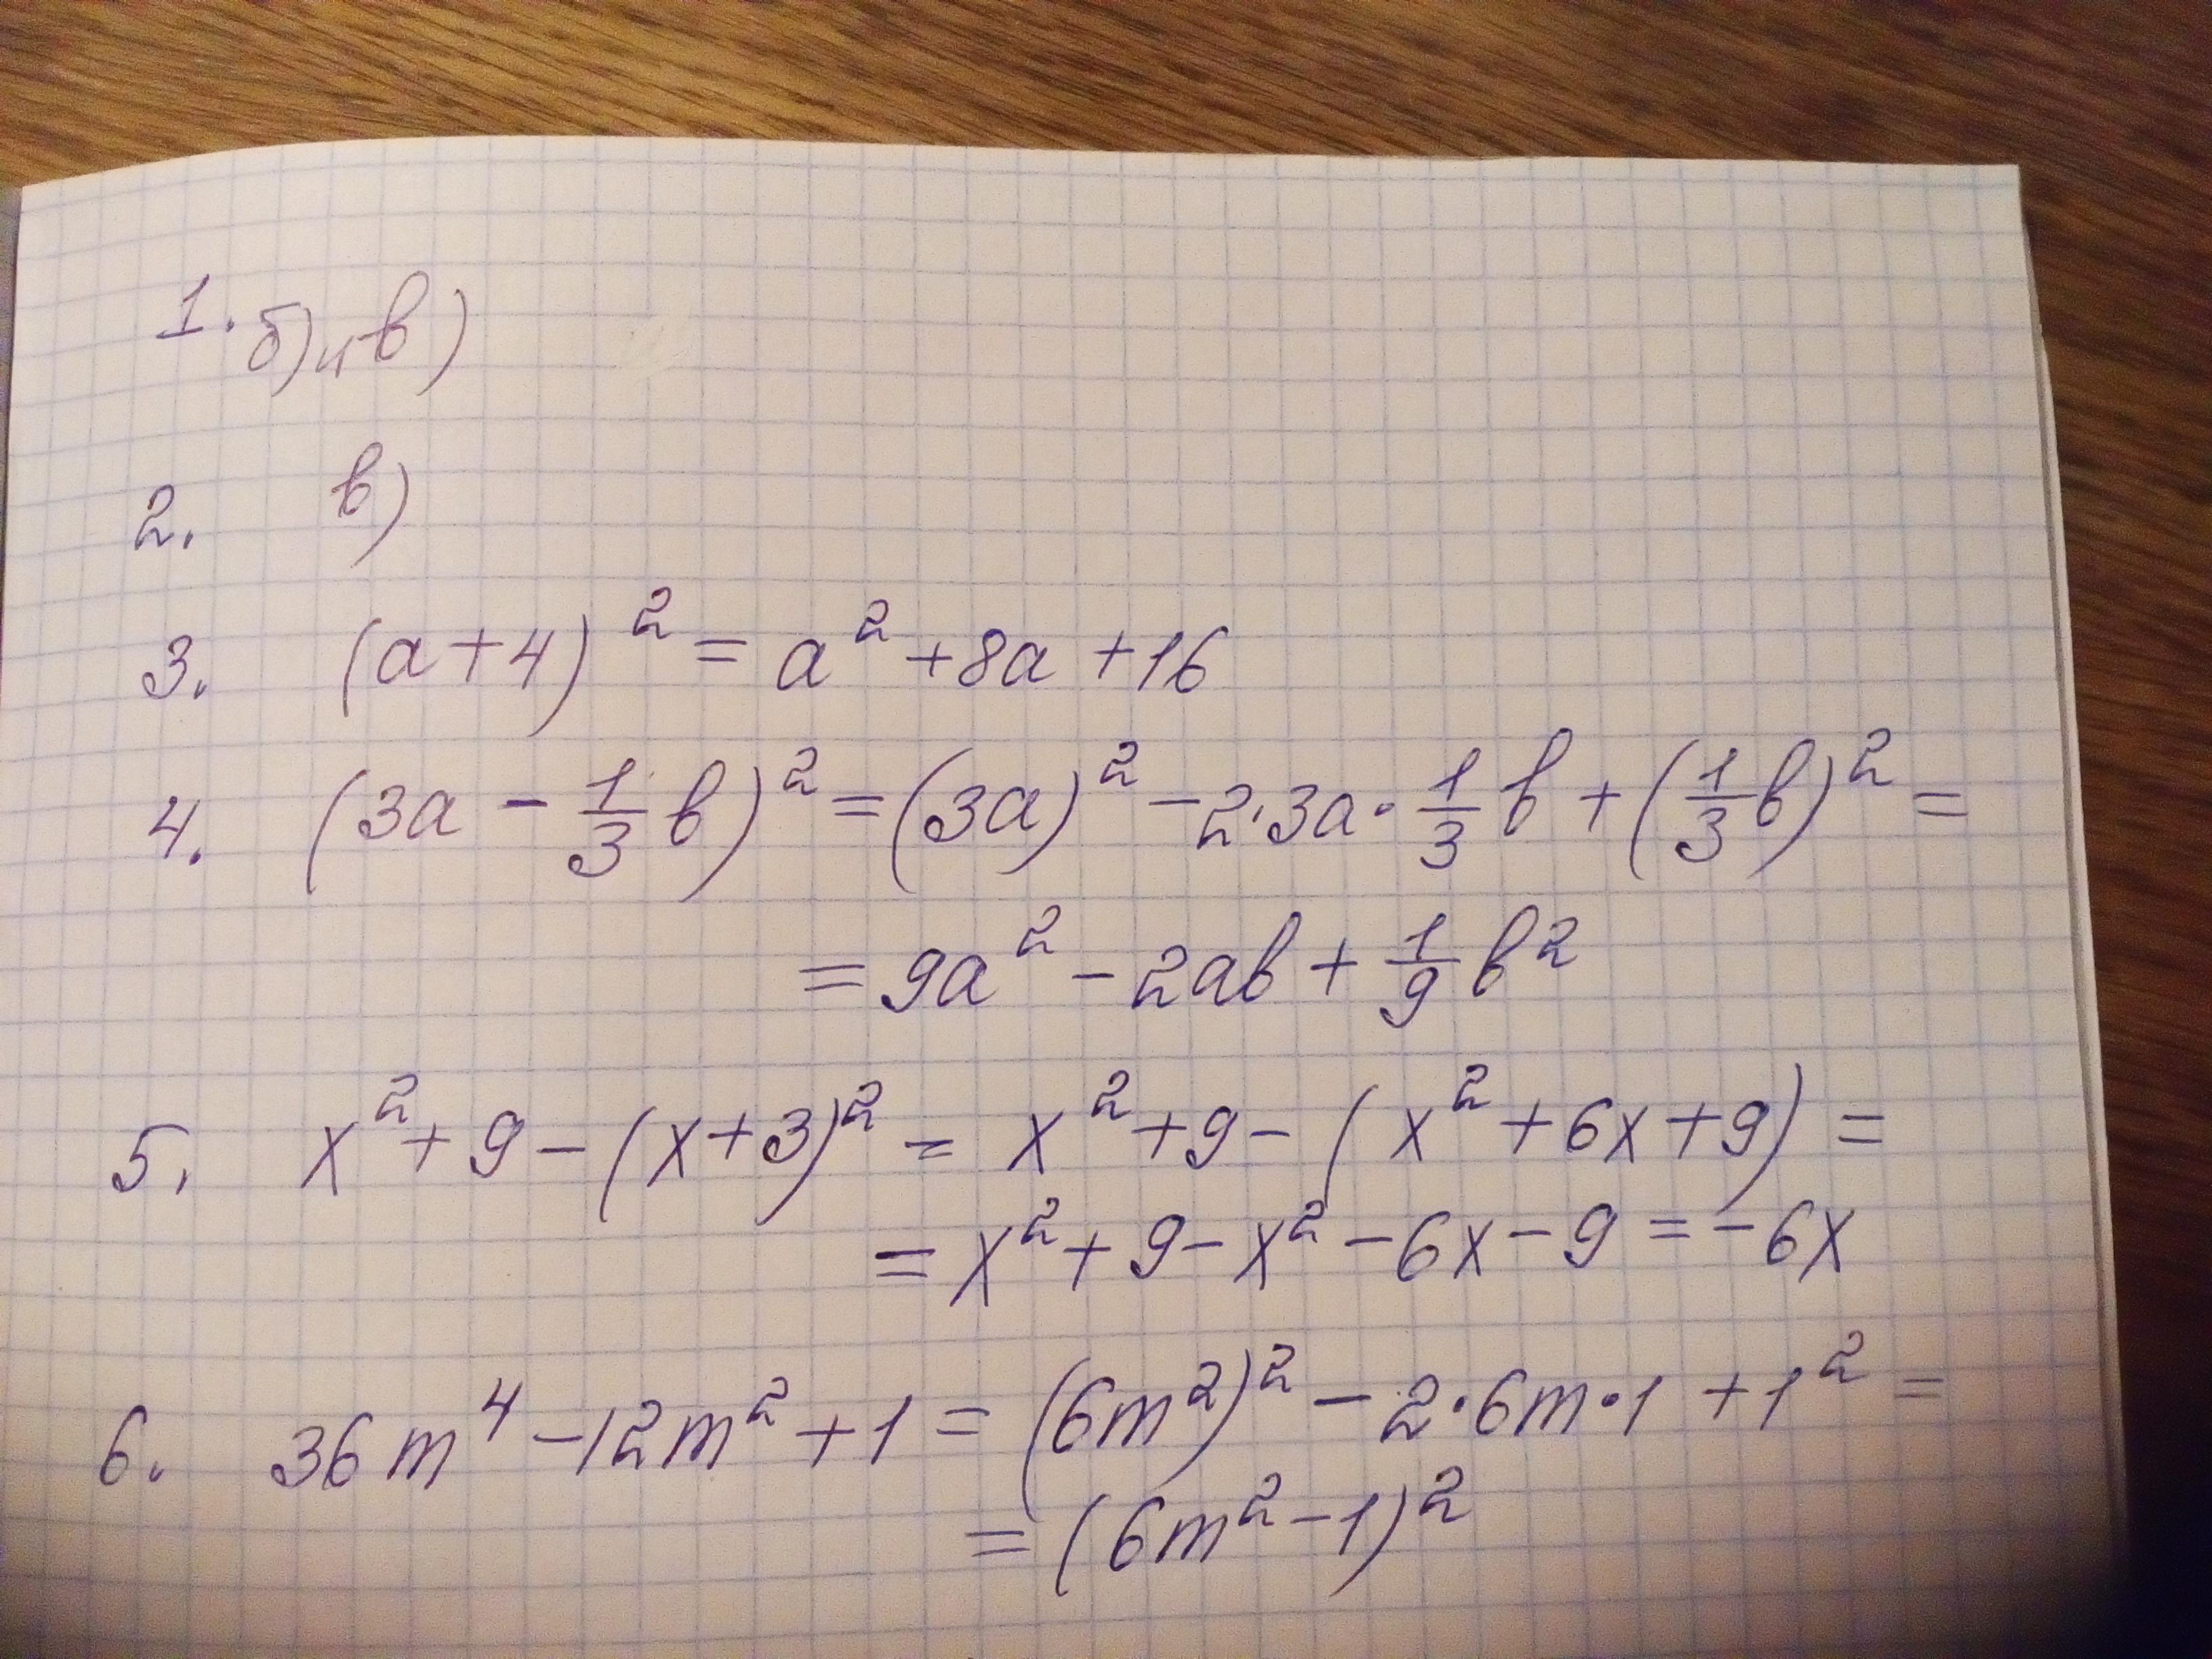 1. б) и в)
2. в)
3. (a+4)² = a² + 8a + 16
4. (3a − 1/3 b)² = (3a)² − 2·3a· 1/3 b + (1/3 b)² =
= 9a² − 2ab + 1/9 b²
5. x² + 9 − (x+3)² = x² + 9 − (x² + 6x + 9) =
= x² + 9 − x² − 6x − 9 = −6x
6. 36m⁴ − 12m² + 1 = (6m²)² − 2·6m·1 + 1² =
= (6m² − 1)²